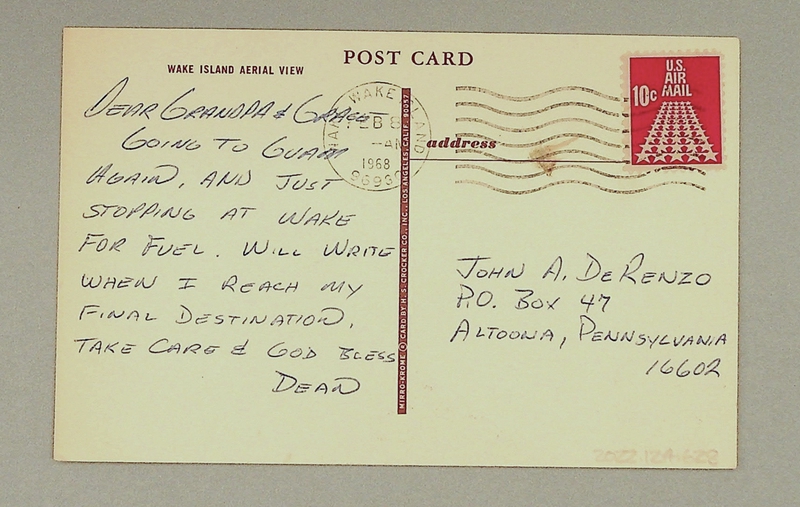 POST CARD
WAKE ISLAND AERIAL VIEW
DEAR GRANDPA & GRACE
GOING TO GUAM
AGAIN, AND JUST
STOPPING AT WAKE
FOR FUEL. WILL WRITE
WHEN I REACH MY
FINAL DESTINATION.
TAKE CARE & GOD BLESS
DEAN
WAKE ISLAND
FEB 8
-AM
1968
MIRRO-KROME ® CARD BY H. S. CROCKER CO., INC., LOS ANGELES, CALIF. 90057
address
U.S.
AIR
MAIL
10c
JOHN A. DERENZO
P.O. BOX 47
ALTOONA, PENNSYLVANIA
16602